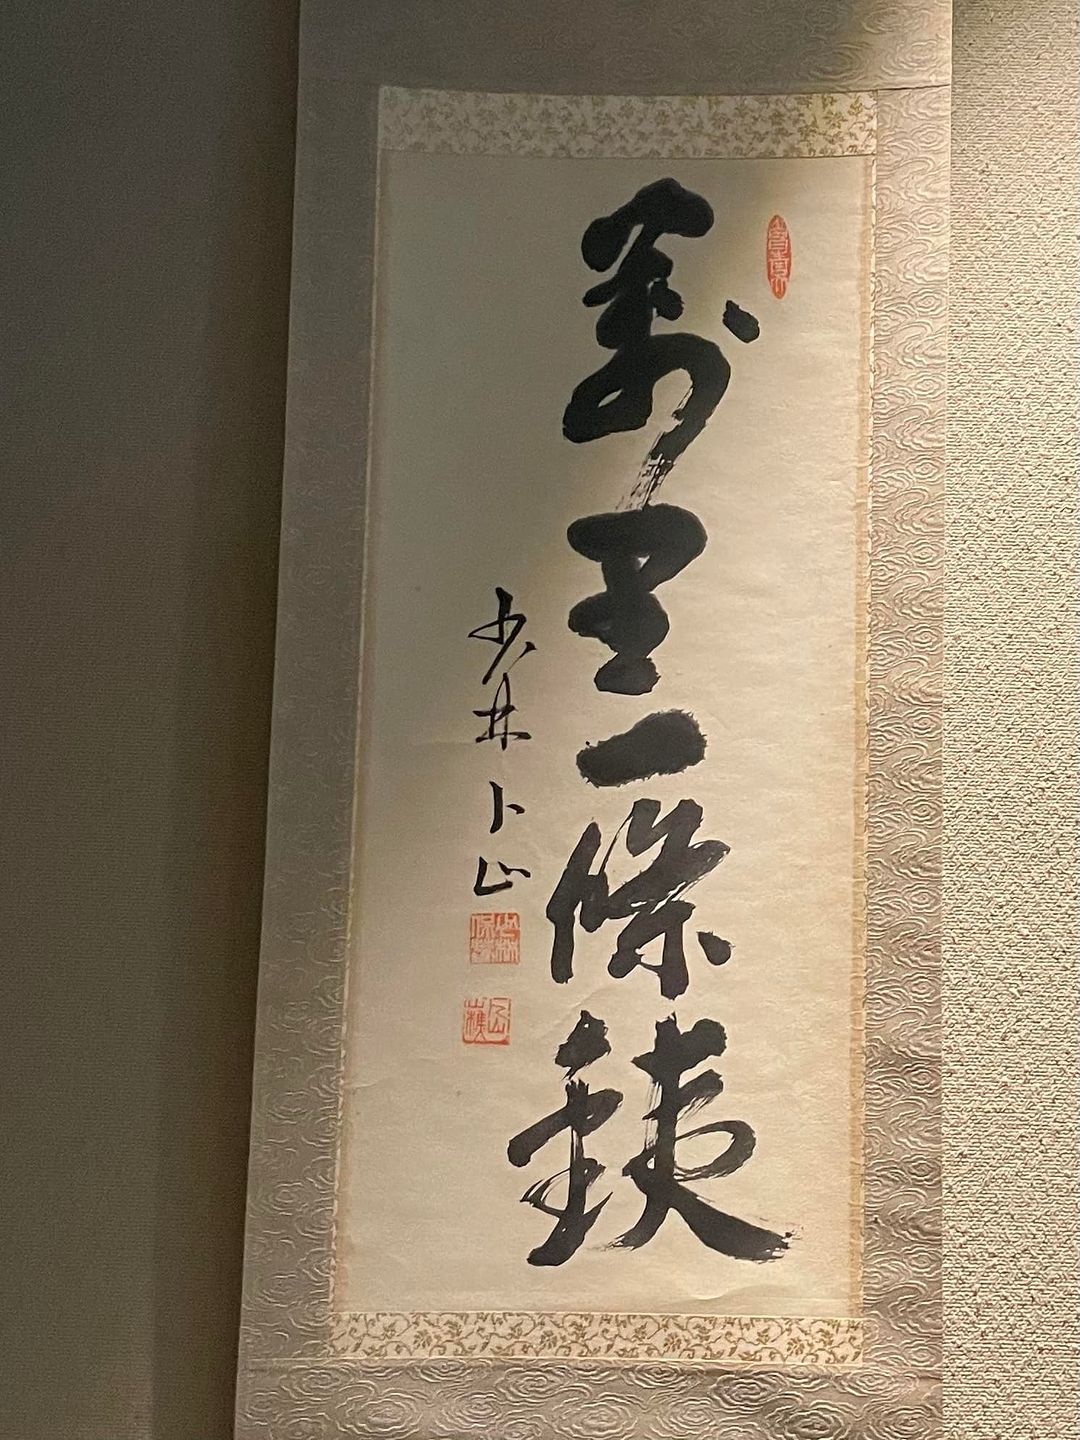 萬里一條鐵
少林卜山